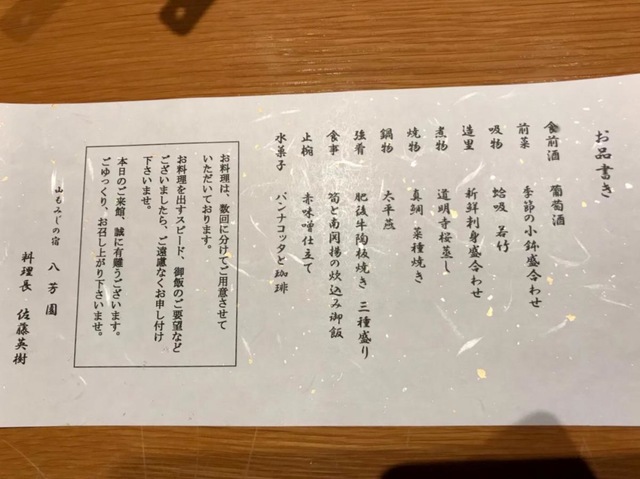 お品書き
食前酒　葡萄酒
前菜　季節の小鉢盛合わせ
吸物　蛤吸　若竹
造里　新鮮刺身盛合わせ
煮物　道明寺桜蒸し
焼物　真鯛　菜種焼き
鍋物　太平燕
強肴　肥後牛陶板焼き　三種盛り
食事　筍と南関揚の炊込み御飯
止椀　赤味噌仕立て
水菓子　パンナコッタと珈琲
お料理は、数回に分けてご用意させて
いただいております。
お料理を出すスピード、御飯のご要望など
ございましたら、ご遠慮なくお申し付け
下さいませ。
本日のご来館、誠に有難うございます。
ごゆっくり、お召し上がり下さいませ。
山もみじの宿　八芳園
料理長　佐藤英樹